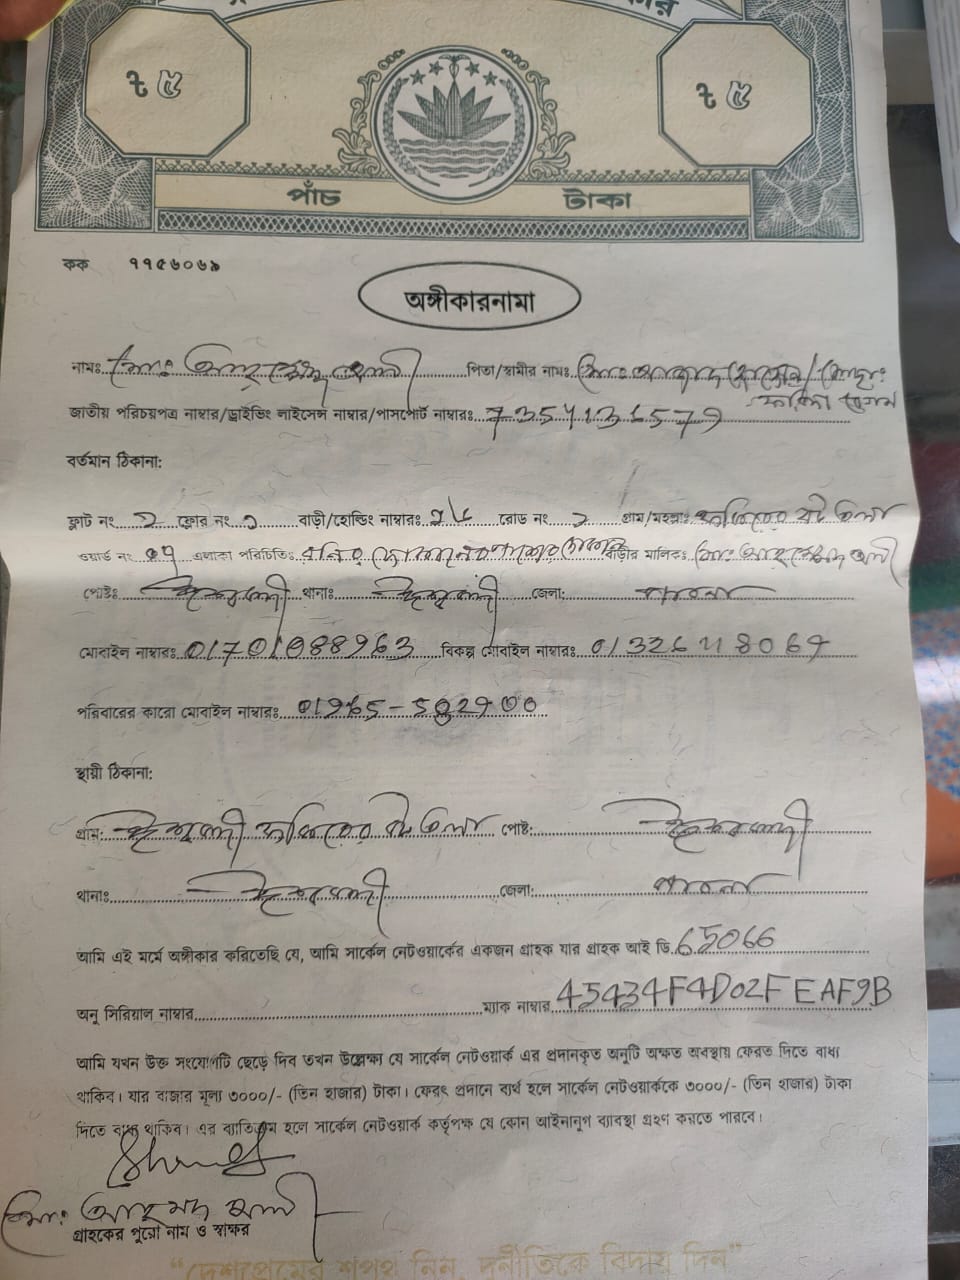 ৳ ৫ ৳ ৫
পাঁচ টাকা
কক ৭৭৫৬০৬৯
অঙ্গীকারনামা
নামঃ মোঃ আহম্মেদ আলী পিতা/স্বামীর নামঃ মোঃ আজাদ হোসেন/মোছাঃ
বেগম
জাতীয় পরিচয়পত্র নাম্বার/ড্রাইভিং লাইসেন্স নাম্বার/পাসপোর্ট নাম্বারঃ 7354136579
বর্তমান ঠিকানা:
ফ্লাট নং ২ ফ্লোর নং ১ বাড়ী/হোল্ডিং নাম্বারঃ রোড নং ২ গ্রাম/মহল্লাঃ ফকিরের বটতলা
ওয়ার্ড নং ০৭ এলাকা পরিচিতিঃ বাড়ীর মালিকঃ মোঃ আহম্মেদ আলী
পোষ্টঃ ঈশ্বরদী থানাঃ ঈশ্বরদী জেলা: পাবনা
মোবাইল নাম্বারঃ বিকল্প মোবাইল নাম্বারঃ
পরিবারের কারো মোবাইল নাম্বারঃ
স্থায়ী ঠিকানা:
গ্রাম: ঈশ্বরদী ফকিরের বটতলা পোষ্ট: ঈশ্বরদী
থানাঃ ঈশ্বরদী জেলা: পাবনা
আমি এই মর্মে অঙ্গীকার করিতেছি যে, আমি সার্কেল নেটওয়ার্কের একজন গ্রাহক যার গ্রাহক আই ডি 65066
অনু সিরিয়াল নাম্বার ম্যাক নাম্বার 45434F4D02FEAF9B
আমি যখন উক্ত সংযোগটি ছেড়ে দিব তখন উল্লেক্ষ্য যে সার্কেল নেটওয়ার্ক এর প্রদানকৃত অনুটি অক্ষত অবস্থায় ফেরত দিতে বাধ্য
থাকিব। যার বাজার মূল্য ৩০০০/- (তিন হাজার) টাকা। ফেরৎ প্রদানে ব্যর্থ হলে সার্কেল নেটওয়ার্ককে ৩০০০/- (তিন হাজার) টাকা
দিতে বাধ্য থাকিব। এর ব্যতিক্রম হলে সার্কেল নেটওয়ার্ক কর্তৃপক্ষ যে কোন আইনানুগ ব্যবস্থা গ্রহণ করতে পারবে।
মোঃ আহমদ আলী
গ্রাহকের পুরো নাম ও স্বাক্ষর
“দেশপ্রেমের শপথ নিন, দুর্নীতিকে বিদায় দিন”